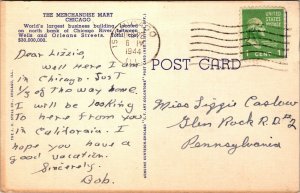 THE MERCHANDISE MART
CHICAGO
World's largest business building, located
on north bank of Chicago River, between
Wells and Orleans Streets. Total cost
$30,000,000.
1944
ILL.
1 CENT 1
POST CARD
Dear Lizzie
Well here I am
in Chicago. Just
1/3 of the way home.
I will be looking
to here from you
in California. I
hope you have a
good vacation.
Sincerely,
Bob.
Miss Lizzie
Glen Rock R.D.#2
Pennsylvania